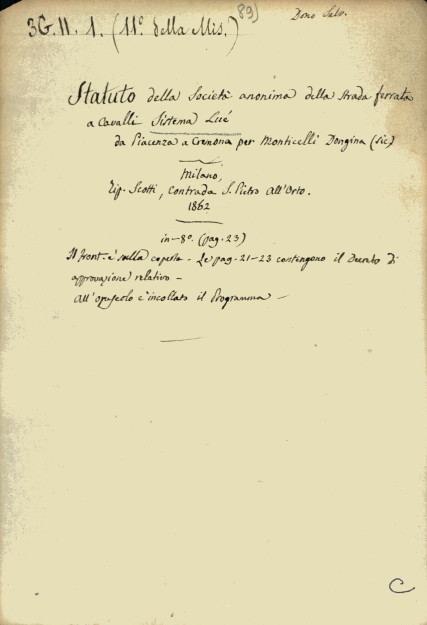 89)
Dono Salv.
3G. II. 1. (11º della Mis.)
Statuto della Società anonima della strada ferrata
a cavalli Sistema Lué
da Piacenza a Cremona per Monticelli Dongina (sic)
Milano,
Tip. Scotti, Contrada S. Pietro all'Orto.
1862
in-8º. (pag. 23)
Il front. è sulla coperta - Le pag. 21-23 contengono il Decreto di
approvazione relativo -
All'opuscolo è incollato il Programma -
C